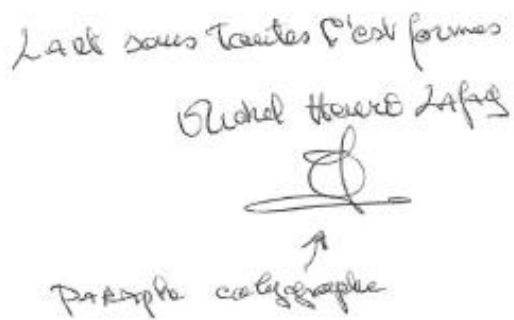 L'art sous Toutes C'est formes
Michel Henro Lafay
Paraphe calygraphe